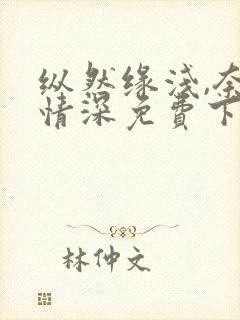 纵然缘浅,奈
情深免费下
林仲文